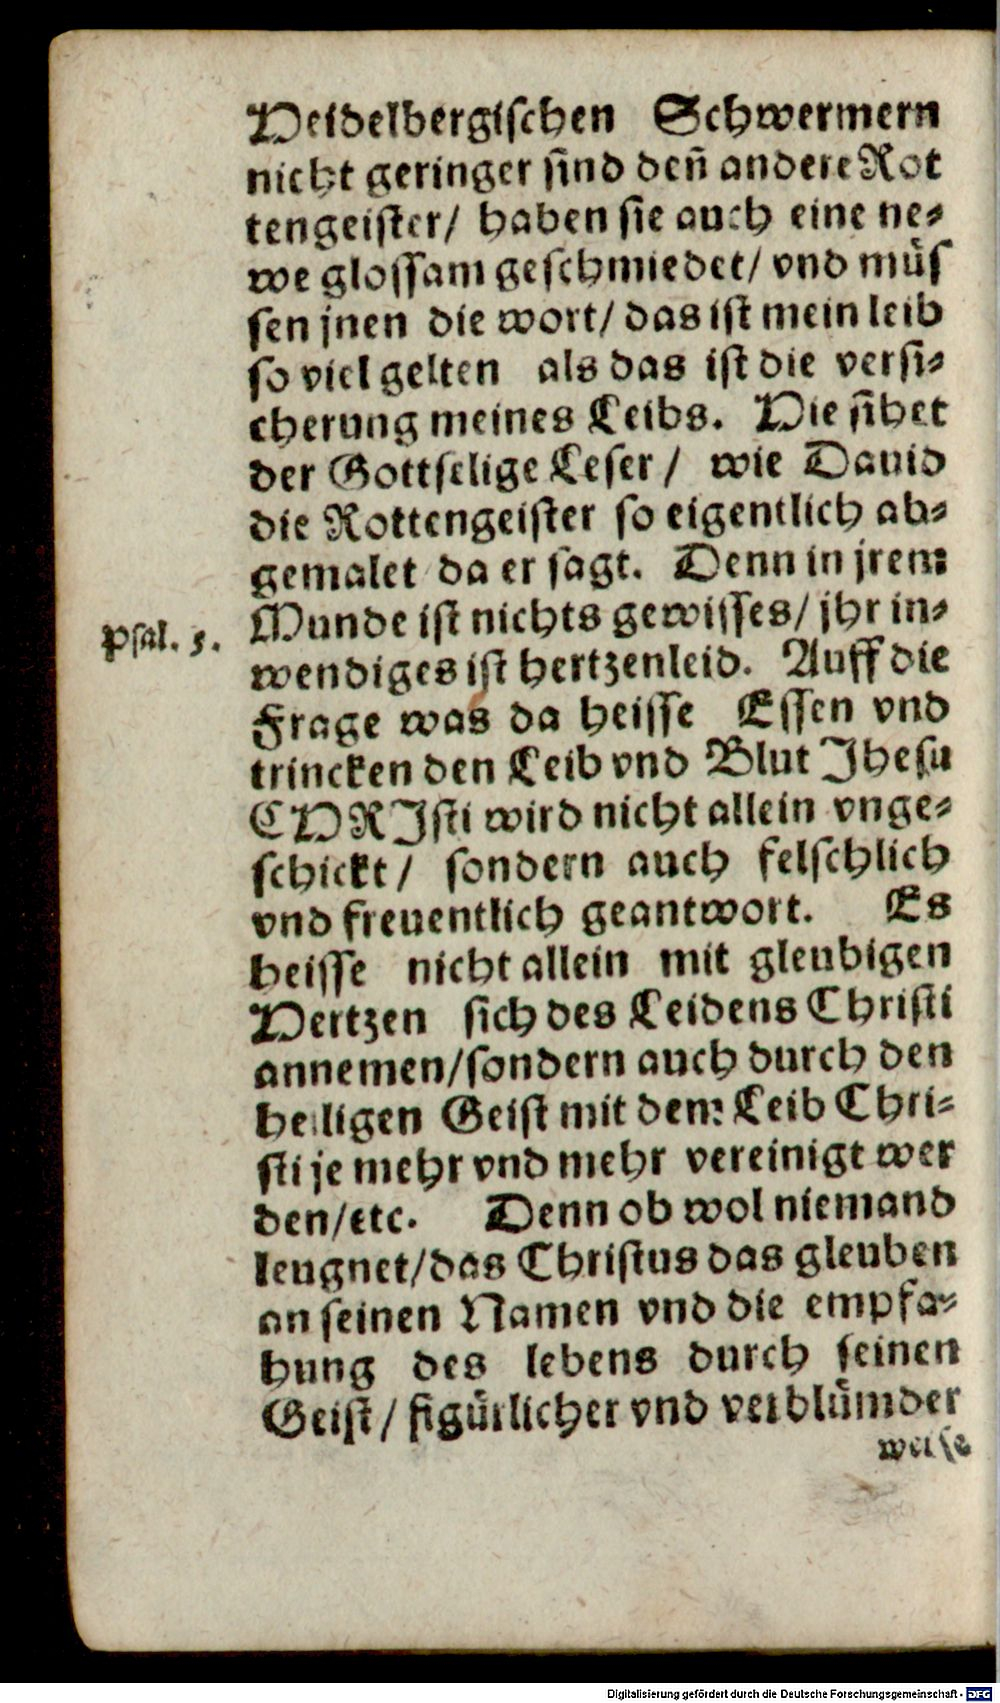 Heidelbergischen Schwermern
nicht geringer sind deñ andere Rot
tengeister/ haben sie auch eine ne⸗
we glossam geschmiedet/ vnd müs
sen jnen die wort/ das ist mein leib
so viel gelten als das ist die versi⸗
cherung meines Leibs. Hie sihet
der Gottselige Leser/ wie Dauid
die Rottengeister so eigentlich ab⸗
gemalet da er sagt. Denn in jrem
Psal. 5.
Munde ist nichts gewisses/ jhr in⸗
wendiges ist hertzenleid. Auff die
Frage was da heisse Essen vnd
trincken den Leib vnd Blut Jhesu
CHRJsti wird nicht allein vnge⸗
schickt/ sondern auch felschlich
vnd freuentlich geantwort. Es
heisse nicht allein mit gleubigen
Hertzen sich des Leidens Christi
annemen/sondern auch durch den
heiligen Geist mit dem Leib Chri⸗
sti je mehr vnd mehr vereinigt wer
den/etc. Denn ob wol niemand
leugnet/das Christus das gleuben
an seinen Namen vnd die empfa⸗
hung des lebens durch seinen
Geist/ figürlicher vnd verblümder
weise
Digitalisierung gefördert durch die Deutsche Forschungsgemeinschaft - DFG